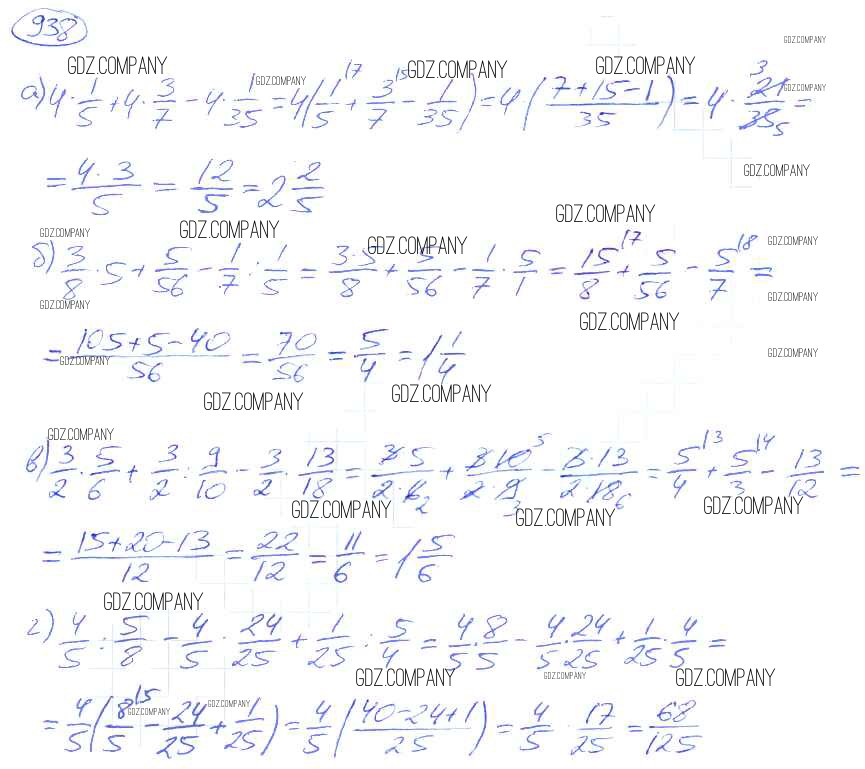 938
GDZ.COMPANY GDZ.COMPANY GDZ.COMPANY GDZ.COMPANY GDZ.COMPANY GDZ.COMPANY
а) 4·1/5 + 4·3/7 − 4·1/35 = 4(1/5 + 3/7 − 1/35) = 4(7+15−1/35) = 4·21/35 =
= 4·3/5 = 12/5 = 2 2/5
GDZ.COMPANY GDZ.COMPANY GDZ.COMPANY GDZ.COMPANY GDZ.COMPANY GDZ.COMPANY
б) 3/8·5 + 5/56 − 1/7 : 1/5 = 3·5/8 + 5/56 − 1/7·5/1 = 15/8 + 5/56 − 5/7 =
GDZ.COMPANY GDZ.COMPANY GDZ.COMPANY
= 105+5−40/56 = 70/56 = 5/4 = 1 1/4
GDZ.COMPANY GDZ.COMPANY GDZ.COMPANY GDZ.COMPANY GDZ.COMPANY
в) 3/2·5/6 + 3/2 : 9/10 − 3/2·13/18 = 3·5/2·6 + 3·10/2·9 − 3·13/2·18 = 5/4 + 5/3 − 13/12 =
GDZ.COMPANY GDZ.COMPANY GDZ.COMPANY
= 15+20−13/12 = 22/12 = 11/6 = 1 5/6
GDZ.COMPANY
г) 4/5 : 5/8 − 4/5·24/25 + 1/25 : 5/4 = 4/5·8/5 − 4/5·24/25 + 1/25·4/5 =
GDZ.COMPANY GDZ.COMPANY GDZ.COMPANY GDZ.COMPANY GDZ.COMPANY
= 4/5(8/5 − 24/25 + 1/25) = 4/5(40−24+1/25) = 4/5·17/25 = 68/125